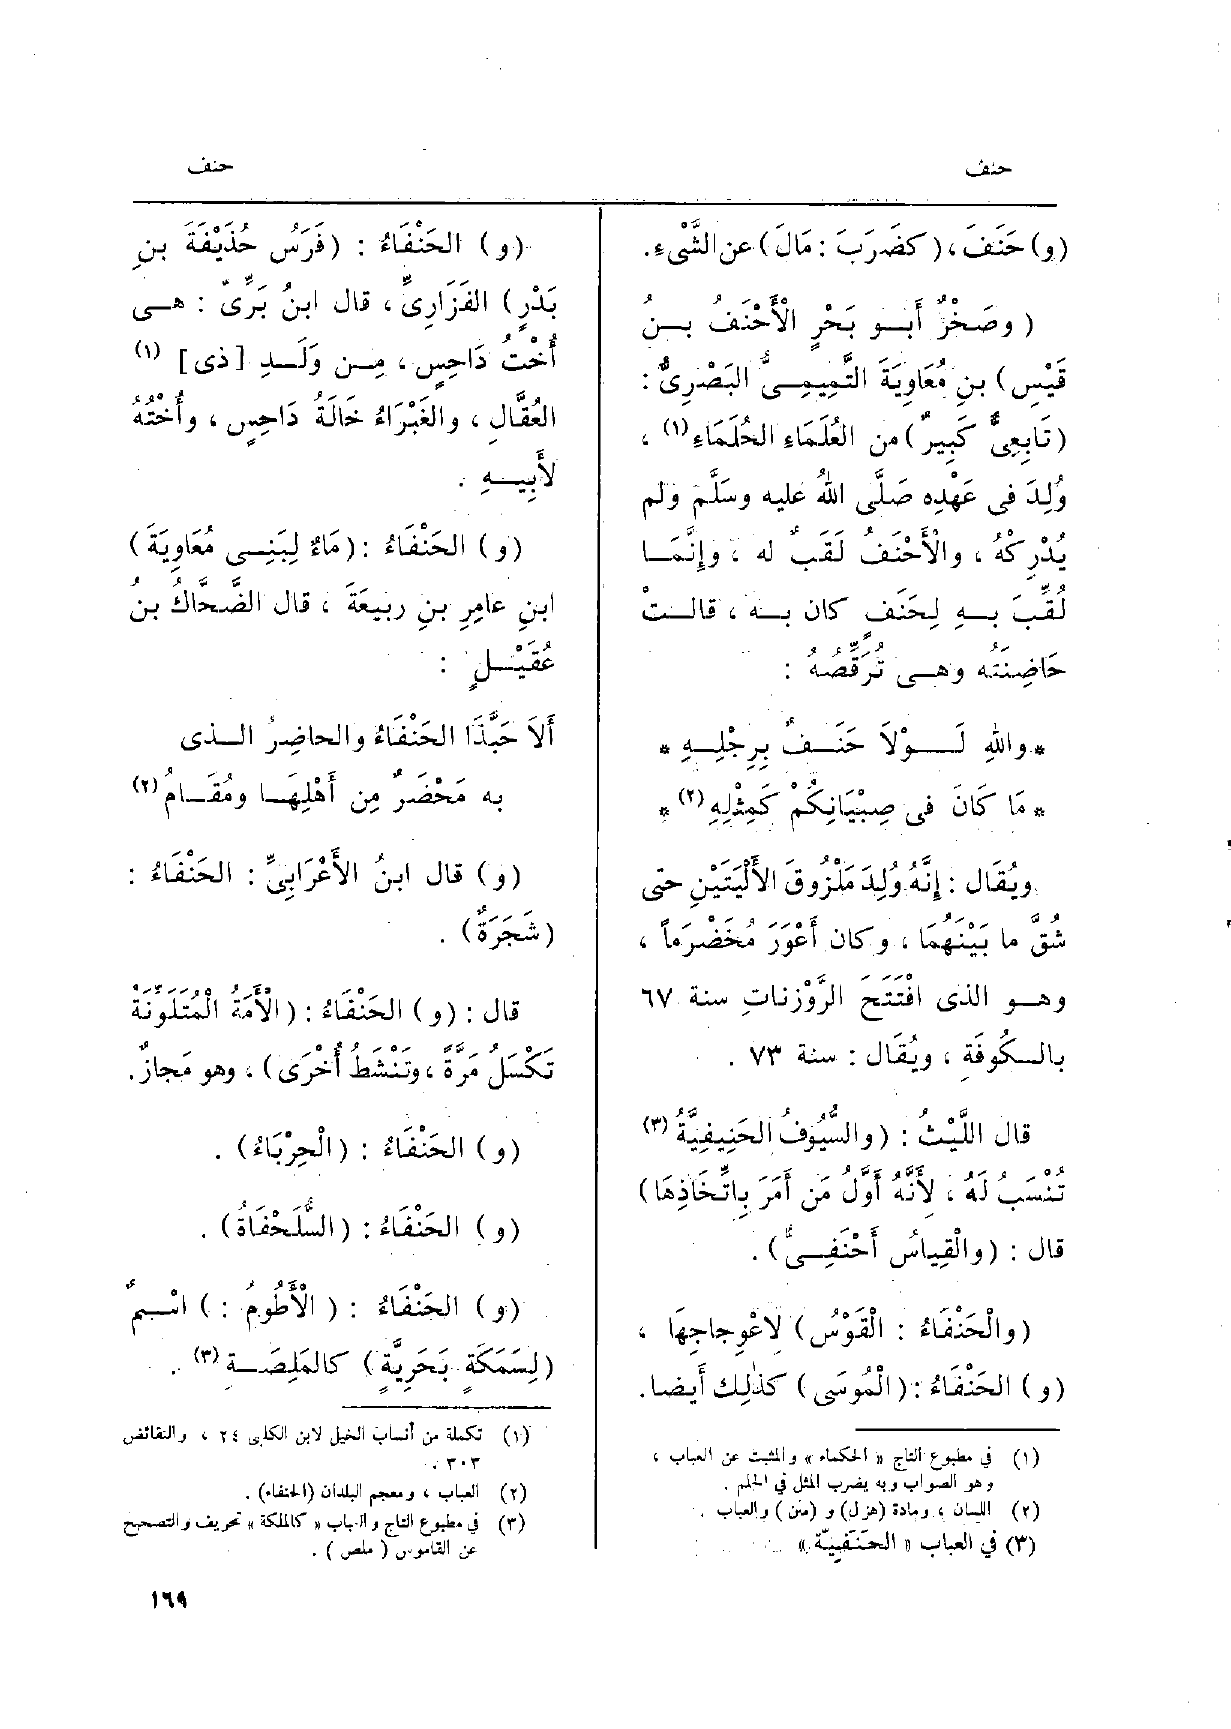 حنف
حنف
(و) حَنَفَ، (كضَرَبَ : مَالَ) عن الشَّىءِ.
(وصَخْرٌ أَبو بَحْرٍ الْأَحْنَفُ بنُ
قَيْسِ) بنِ مُعَاوِيَةَ التَّمِيمِىُّ البَصْرِىُّ :
(تَابِعِىٌّ كَبِيرٌ) من العُلَمَاءِ الحُلَمَاءِ(١) ،
وُلِدَ فى عَهْدِه صَلَّى اللهُ عليه وسَلَّمَ ولم
يُدْرِكْهُ ، والْأَحْنَفُ لَقَبٌ له ، وإِنَّمَا
لُقِّبَ بهِ لِحَنَفٍ كان به ، قالتْ
حَاضِنَتُه وهى تُرَقِّصُهُ :
* واللهِ لَوْلاَ حَنَفٌ بِرِجْلِهِ *
* مَا كَانَ فى صِبْيَانِكُمْ كَمِثْلِهِ(٢) *
ويُقَال : إِنَّهُ وُلِدَ مَلْزُوقَ الأَلْيَتَيْنِ حتى
شُقَّ ما بَيْنَهُمَا ، وكان أَعْوَرَ مُخَضْرَماً ،
وهو الذى افْتَتَحَ الرَّوْزَنَاتِ سنة ٦٧
بالكُوفَةِ ، ويُقَال : سنة ٧٣ .
قال اللَّيْثُ : (والسُّيُوفُ الحَنِيفِيَّةُ(٣)
تُنْسَبُ لَهُ ، لأَنَّهُ أَوَّلُ مَن أَمَرَ بِاتِّخَاذِهَا)
قال : (والْقِيَاسُ أَحْنَفِىٌّ) .
(والْحَنْفَاءُ : الْقَوْسُ) لاعْوِجاجِهَا ،
(و) الحَنْفَاءُ : (الْمُوسَى) كذٰلِك أَيضا.
(١) في مطبوع التاج « الحكماء » والمثبت عن العباب ،
وهو الصواب وبه يضرب المثل في الحلم .
(٢) اللسان ، ومادة (هزل) و (متن) والعباب .
(٣) في العباب « الحَنَفِيّة »
(و) الحَنْفَاءُ : (فَرَسُ حُذَيْفَةَ بنِ
بَدْرٍ) الفَزَارِىِّ ، قال ابنُ بَرِّىّ : هى
أُخْتُ دَاحِسٍ ، مِن وَلَدِ [ذى](١)
العُقَّالِ ، والغَبْرَاءُ خَالَةُ دَاحِسٍ ، وأُخْتُهُ
لأَبِيهِ .
(و) الحَنْفَاءُ : (مَاءٌ لِبَنِى مُعَاوِيَةَ)
ابنِ عامِرِ بنِ ربيعَةَ ، قال الضَّحَّاكُ بن
عُقَيْلٍ :
أَلاَ حَبَّذَا الحَنْفَاءُ والحاضِرُ الذى
به مَحْضَرٌ مِن أَهْلِهَا ومُقَامُ(٢)
(و) قال ابنُ الأَعْرَابِىِّ : الحَنْفَاءُ :
(شَجَرَةٌ) .
قال : (و) الحَنْفَاءُ : (الْأَمَةُ الْمُتَلَوِّنَةُ
تَكْسَلُ مَرَّةً ، وتَنْشَطُ أُخْرَى) ، وهو مَجازٌ.
(و) الحَنْفَاءُ : (الْحِرْبَاءُ) .
(و) الحَنْفَاءُ : (السُّلَحْفَاةُ) .
(و) الحَنْفَاءُ : (الْأَطُومُ :) اسْمٌ
(لِسَمَكَةٍ بَحْرِيَّةٍ) كالمَلِصَةِ(٣) .
(١) تكملة من أنساب الخيل لابن الكلبى ٢٤ ، والنقائض
٣٠٣ .
(٢) العباب ، ومعجم البلدان (الحنفاء) .
(٣) في مطبوع التاج والعباب « كالملكة » تحريف والتصحيح
عن القاموس (ملص) .
١٦٩